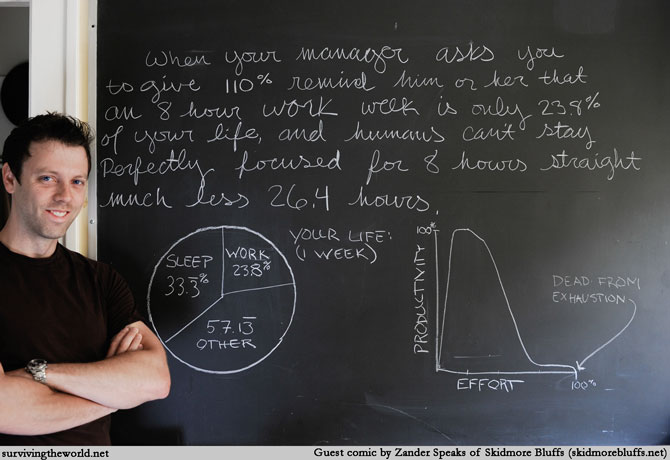 When your manager asks you
to give 110% remind him or her that
an 8 hour work week is only 23.8%
of your life, and humans can't stay
perfectly focused for 8 hours straight
much less 26.4 hours.
SLEEP
33.3%
WORK
23.8%
57.13
OTHER
YOUR LIFE:
(1 WEEK)
100%
PRODUCTIVITY
EFFORT
100%
DEAD FROM
EXHAUSTION
survivingtheworld.net
Guest comic by Zander Speaks of Skidmore Bluffs (skidmorebluffs.net)